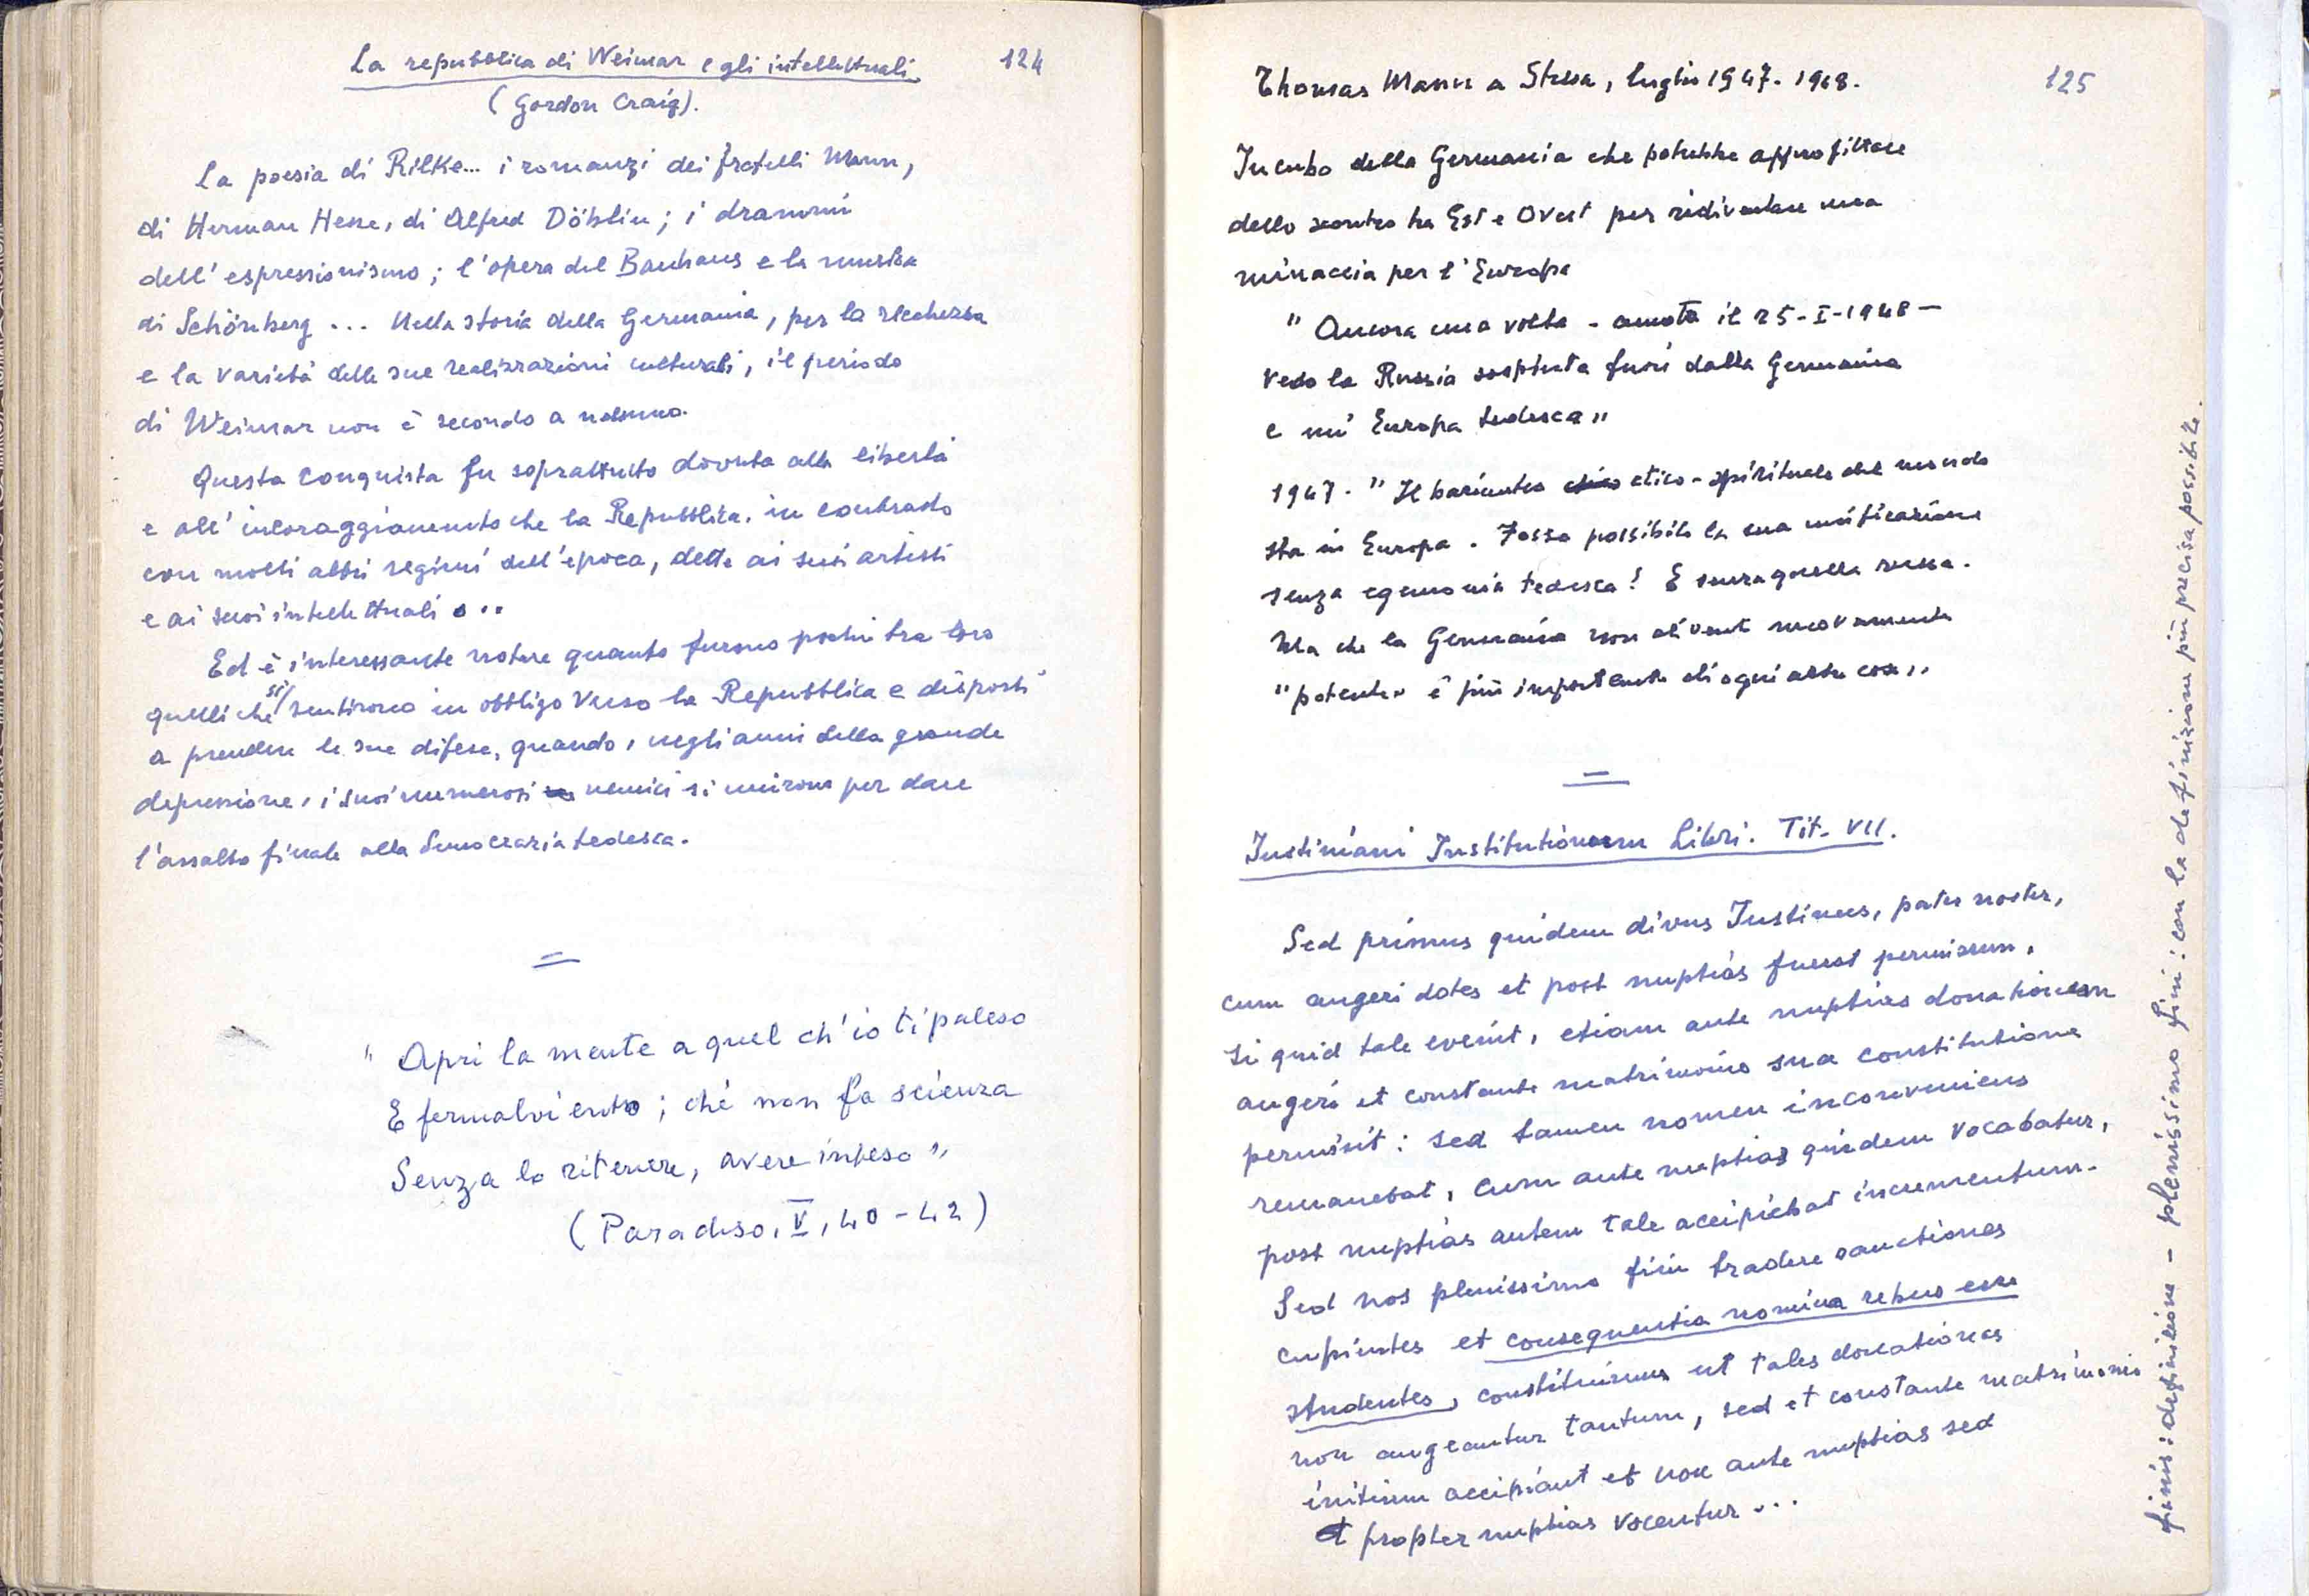 La repubblica di Weimar e gli intellettuali
124
(Gordon Craig).
La poesia di Rilke... i romanzi dei fratelli Mann,
di Herman Hesse, di Alfred Döblin; i drammi
dell'espressionismo; l'opera del Bauhaus e la musica
di Schönberg ... Nella storia della Germania, per la ricchezza
e la varietà delle sue realizzazioni culturali, il periodo
di Weimar non è secondo a nessuno.
Questa conquista fu soprattutto dovuta alla libertà
e all'incoraggiamento che la Repubblica, in contrasto
con molti altri regimi dell'epoca, dette ai suoi artisti
e ai suoi intellettuali ...
Ed è interessante notare quanto furono pochi tra loro
quelli che si sentirono in obbligo verso la Repubblica e disposti
a prendere le sue difese, quando, negli anni della grande
depressione, i suoi numerosi nemici si unirono per dare
l'assalto finale alla democrazia tedesca.
" Apri la mente a quel ch'io ti paleso
E fermalvi entro; ché non fa scienza
Senza lo ritenere, avere inteso "
(Paradiso, V, 40-42)
Thomas Mann a Stresa, luglio 1947. 1948.
125
Incubo della Germania che potrebbe approfittare
dello scontro tra Est e Ovest per ridiventare una
minaccia per l'Europa
" Ancora una volta - annota il 25-I-1948 -
vedo la Russia sospinta fuori dalla Germania
e un'Europa tedesca "
1947. " Il baricentro etico-spirituale del mondo
sta in Europa. Fosse possibile la sua unificazione
senza egemonia tedesca! E senza quella russa.
Ma che la Germania non diventi nuovamente
"potente" è più importante di ogni altra cosa".
Iustiniani Institutionum Libri. Tit. VII.
Sed primus quidem divus Iustinus, pater noster,
cum augeri dotes et post nuptias fuerat permissum,
si quid tale evenit, etiam ante nuptias donationem
augeri et constante matrimonio sua constitutione
permisit: sed tamen nomen inconveniens
remanebat, cum ante nuptias quidem vocabatur,
post nuptias autem tale accipiebat incrementum.
Sed nos plenissimo fini tradere sanctiones
cupientes et consequentia nomina rebus esse
studentes, constituimus ut tales donationes
non augeantur tantum, sed et constante matrimonio
initium accipiant et non ante nuptias sed
et propter nuptias vocentur ...
finis: definizione - plenissimo fini: con la definizione più precisa possibile.